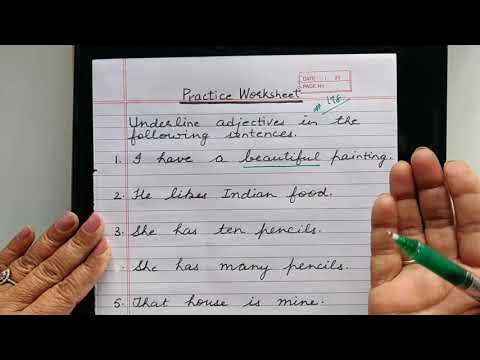 DATE
PAGE No
Practice Worksheet
Underline adjectives in the
following sentences.
1. I have a beautiful painting.
2. He likes Indian food.
3. She has ten pencils.
She has many pencils.
5. That house is mine.